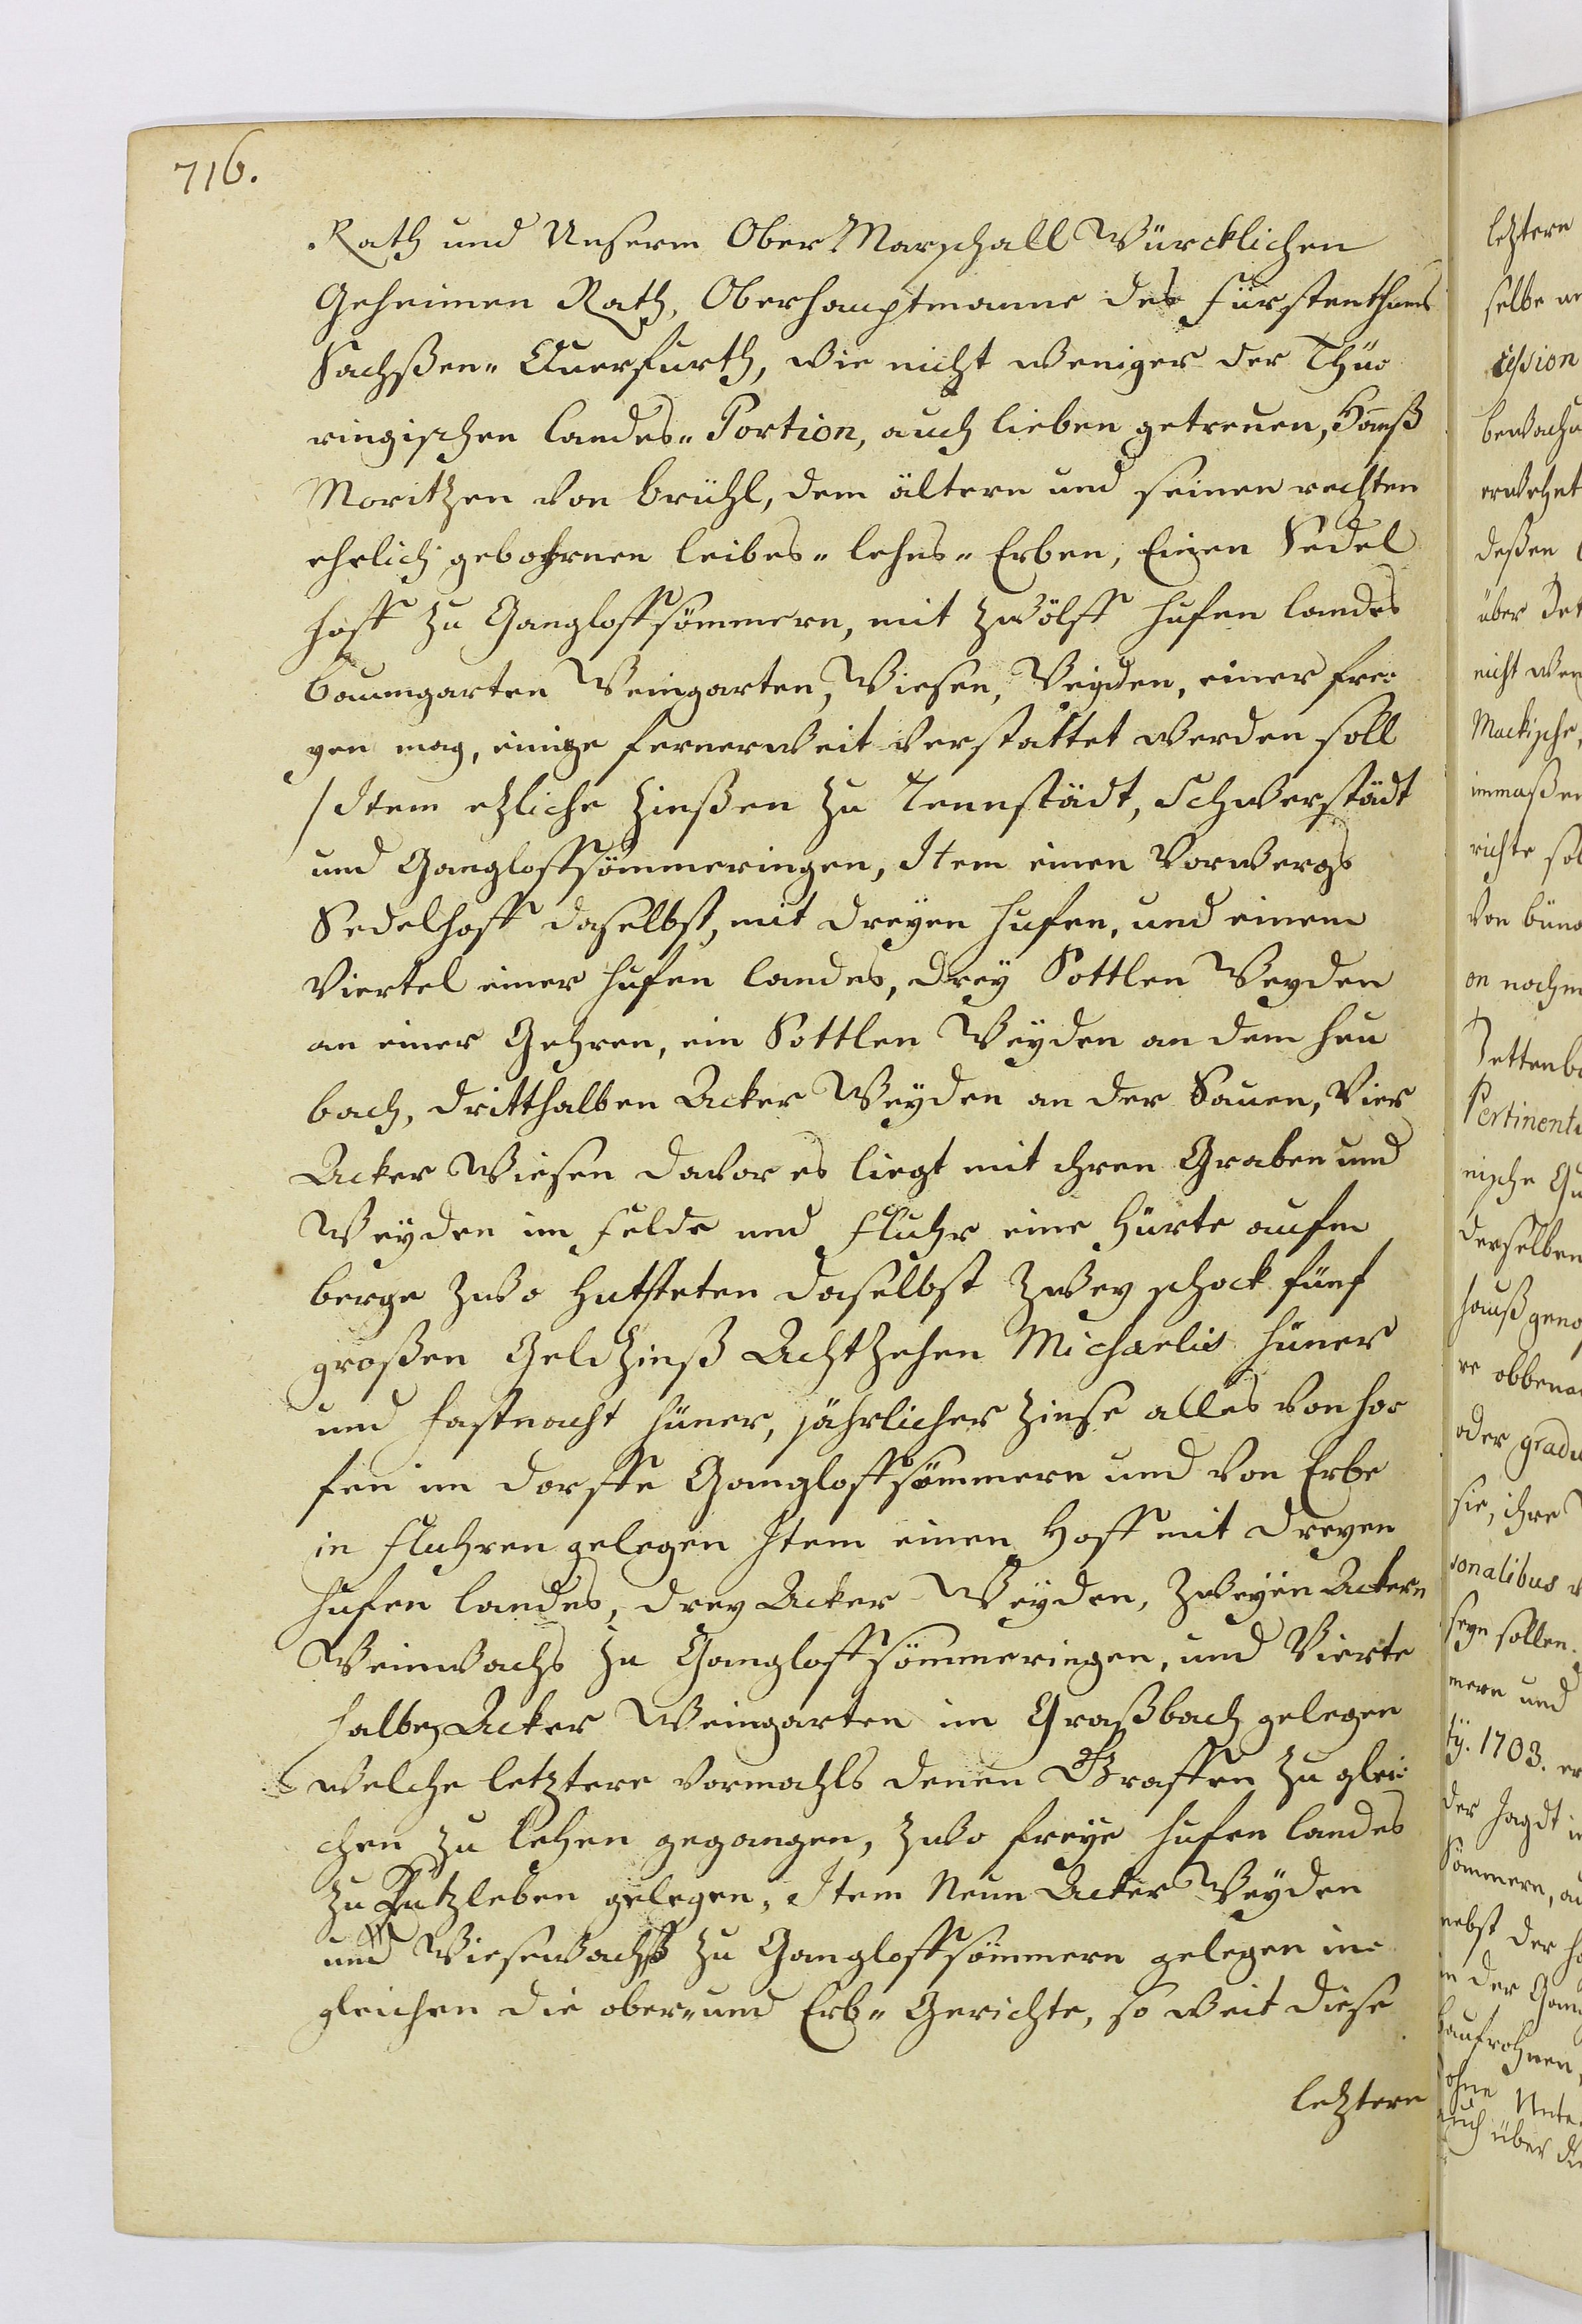 716.
Rath und Unserm Ober Marschall Würcklichen
Geheimen Rath, Oberhauptmanne des Fürstenthums
Sachßen„ Querfurth, wie nicht weniger der Thü„
ringischen Landes„ Portion, auch lieben getreuen, Hannß
Moritzen von Brühl, dem ältern und seinen rechten
ehrlich gebohrnen Leibes„ Lehns„ Erben, Einen Sedel
hoff zu Gangloffsömmern, mit zwölff Hufen Landes
Baumgarten Weingarten, Wiesen, Weyden, einer fre„
gen mag, einige fernerweit verstattet werden soll
/Item etzliche Zinßen zu Tennstädt, Schwerstädt
und Gangloffsömmeringen, Item einen Vorwergs
Sedelhoff daselbst, mit dreyen Hufen, und einem
Viertel einer Hufen Landes, drey Sottlen Weyden
an einer Gehren, ein Sottlen Weyden an dem Heu
bach, dritthalben Acker Weyden an der Sauen, Vier
Acker Wiesen davor es liegt mit ihren Graben und
Weyden im Felde und Fluhr eine Hürte aufm
berge zwo Hutsteten daselbst zwey schock fünf
großen Geldzinß Achtzehen Michaelis Hüner
und Fastnacht Hüner, jährlicher Zinse alles von Ho„
fen im Dorffe Gangloffsömmern und von Erbe
in Fluhren gelegen Item einen Hoff mit dreyen
Hufen Landes, drey Acker Weyden, zweyen Ackern
Weinwachs zu Gangloffsömmeringen, und Vierte
halben Acker Weingarten im Graßbach gelegen
welche letztere vormahls denen Graffen zu Glei„
chen zu Lehen gegangen, zwo freye Hufen Landes
zu Lützleben gelegen, Item Neun Acker Weyden
und Wiesewachß zu Gangloffsömmern gelegen in„
gleichen die ober„ und Erb„ Gerichte, so weit diese
letztern
letztern
selbe
cession
bewach
erwehnt
deßen
über
nicht
immaßen
richte
von
on
Pertinent
nische
derselben
haußgeno
re
oder gradu
sie, ihre
sonalibus
seyn sollen.
mern und
1703.
der Jagdt
Sömmern,
nebst der
in der
ohne
auch über